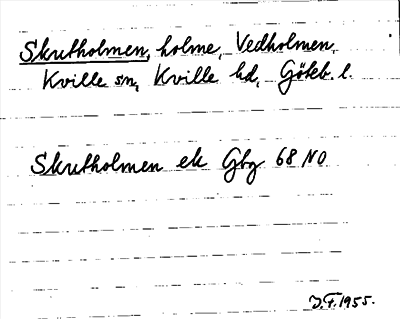 Skrutholmen, holme, Vedholmen,
Kville sn, Kville hd, Göteb. l.
Skrutholmen ek Gbg 68 NO
J.F. 1955.